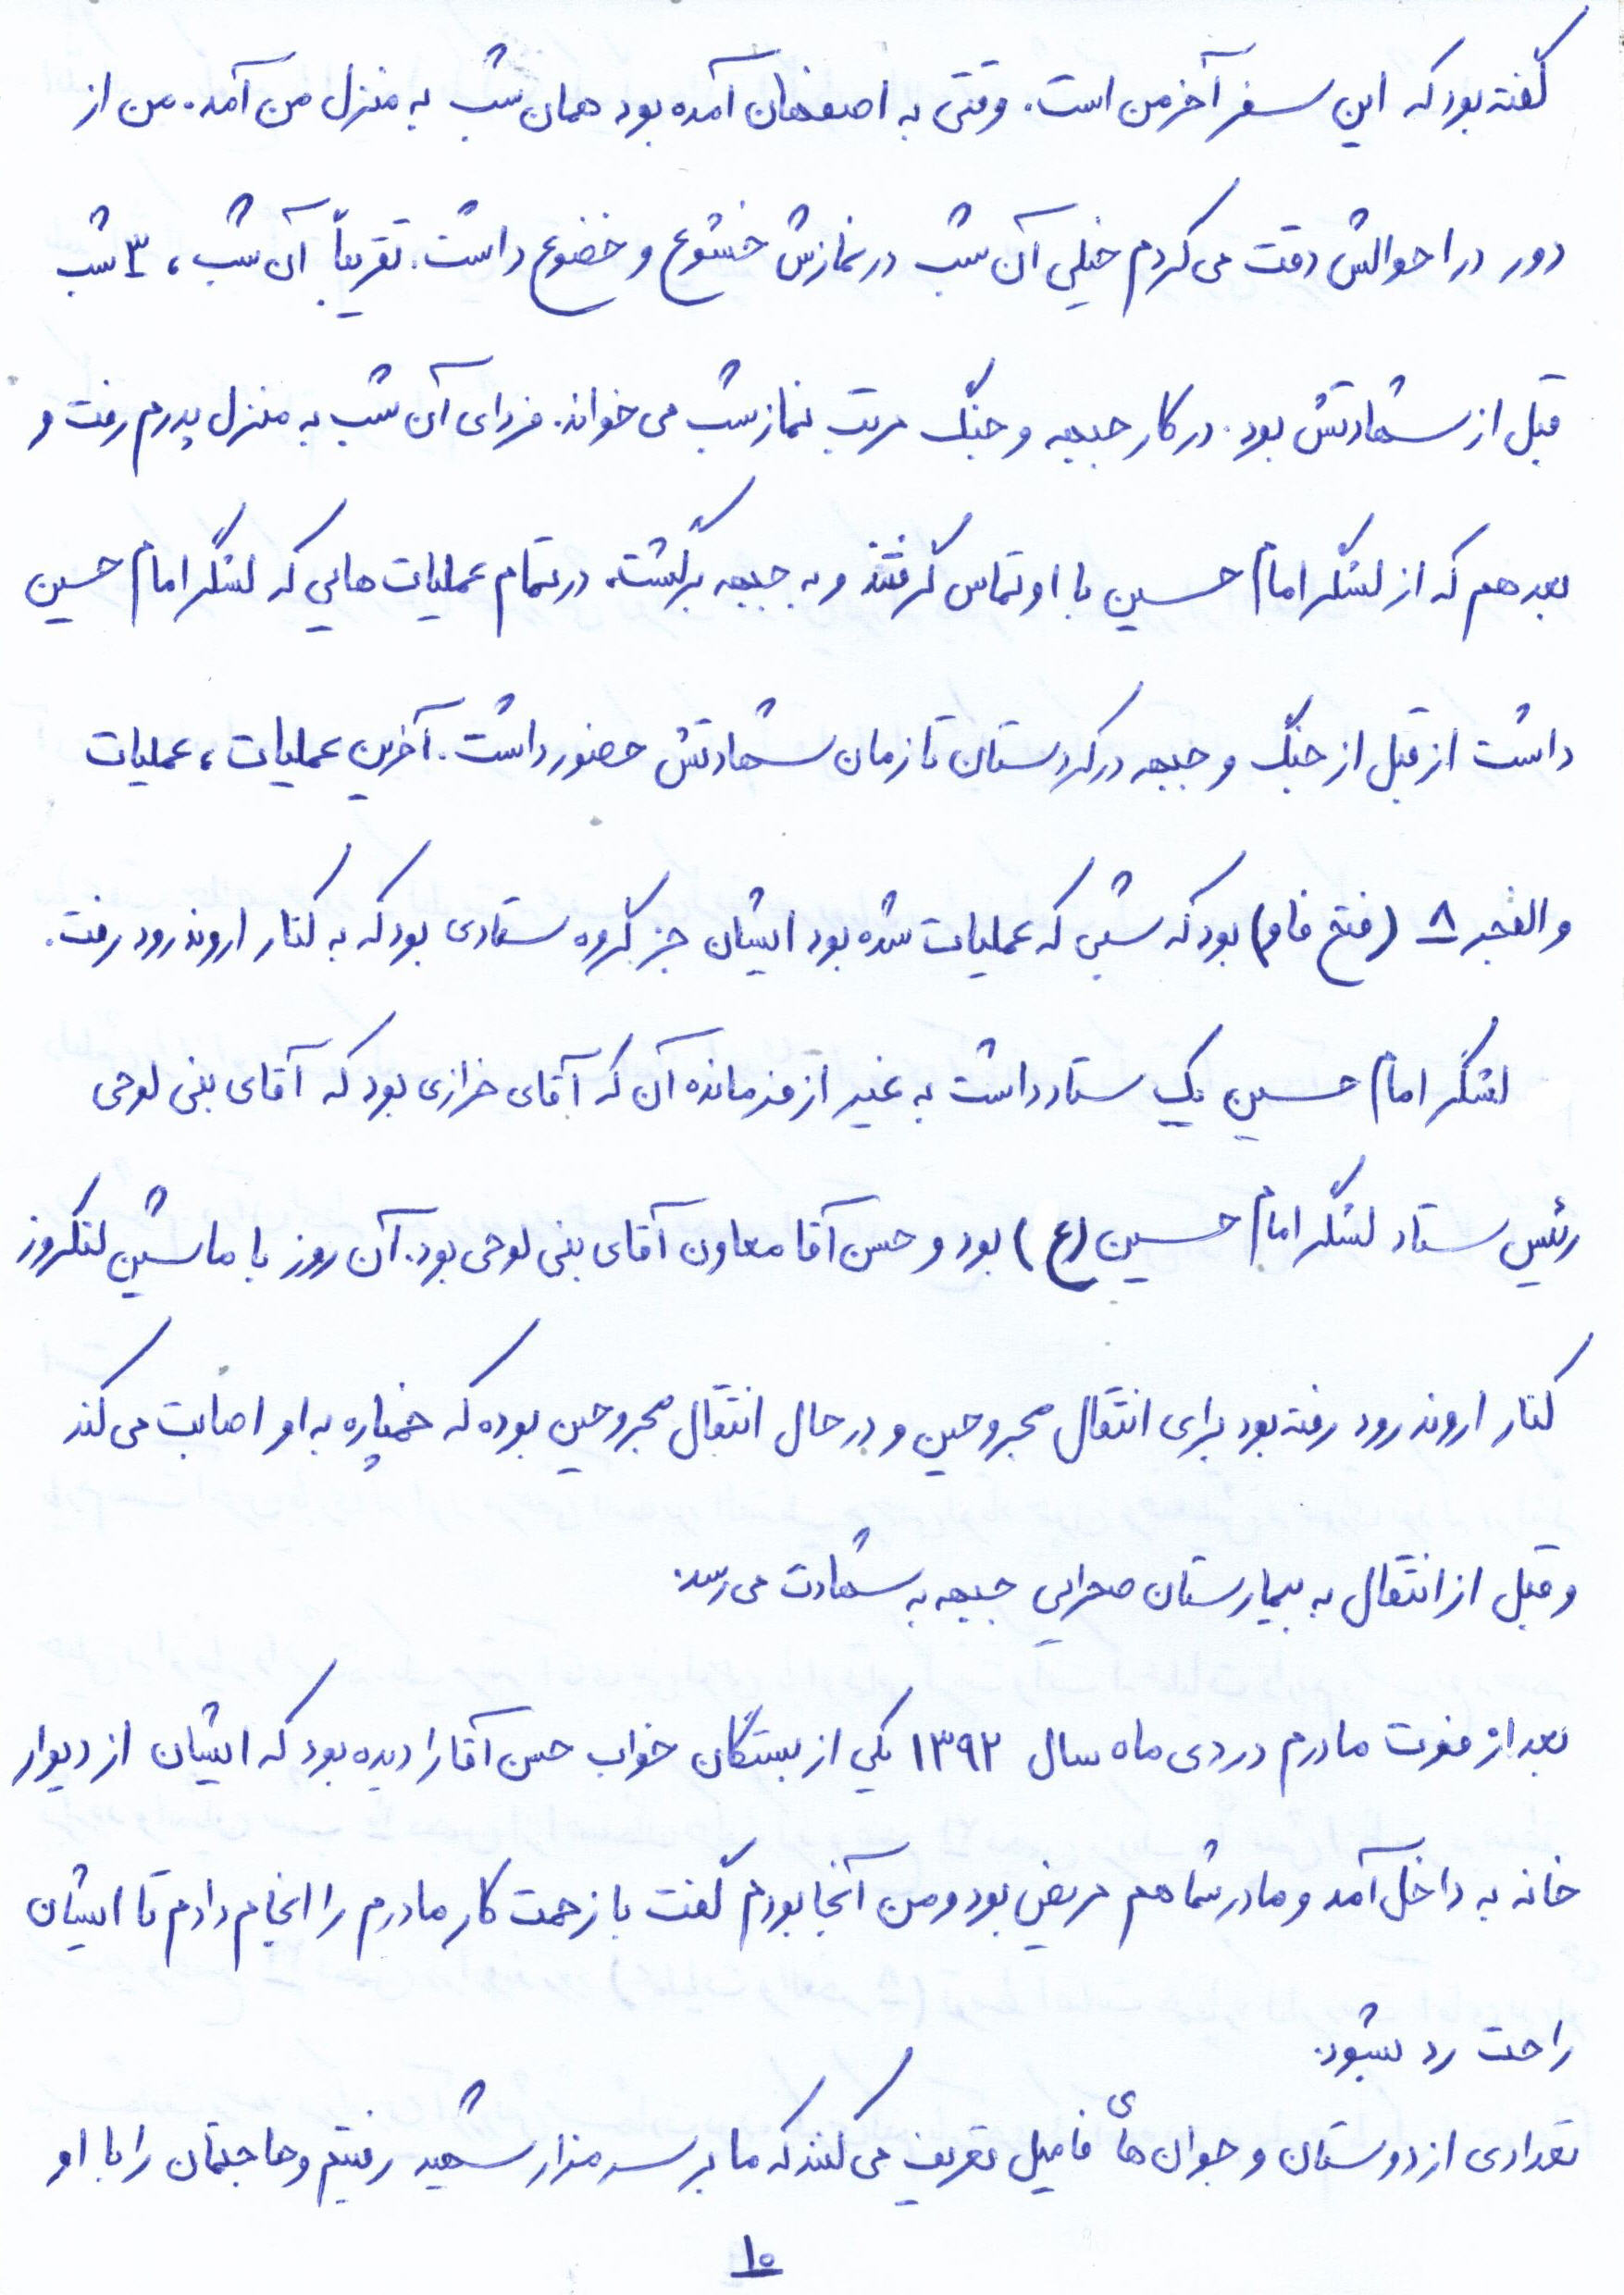 گفته بود که این سفر آخر من است. وقتی به اصفهان آمده بود همان شب به منزل من آمد. من از
دور در احوالش دقت می کردم خیلی آن شب در نمازش خشوع و خضوع داشت. تقریباً آن شب، ۳ شب
قبل از شهادتش بود. در کار جبهه و جنگ مرتب نماز شب می خواند. فردای آن شب به منزل پدرم رفت و
بعد هم که از لشکر امام حسین با او تماس گرفتند و به جبهه برگشت. در تمام عملیات هایی که لشگر امام حسین
داشت از قبل از جنگ و جبهه در کردستان تا زمان شهادتش حضور داشت. آخرین عملیات، عملیات
والفجر ۸ (فتح فاو) بود که شبی که عملیات شده بود ایشان جز گروه ستادی بود که به کنار اروند رود رفت.
لشگر امام حسین یک ستاد داشت به غیر از فرمانده آن که آقای خرازی بود که آقای بنی لوحی
رئیس ستاد لشگر امام حسین (ع) بود و حسن آقا معاون آقای بنی لوحی بود. آن روز با ماشین لنکروز
کنار اروند رود رفته بود برای انتقال مجروحین و در حال انتقال مجروحین بوده که خمپاره به او اصابت می کند
و قبل از انتقال به بیمارستان صحرایی جبهه به شهادت می رسد.
بعد از فوت مادرم در دی ماه سال ۱۳۹۲ یکی از بستگان خواب حسن آقا را دیده بود که ایشان از دیوار
خانه به داخل آمد و مادر شما هم مریض بود و من آنجا بودم گفت با زحمت کار مادرم را انجام دادم تا ایشان
راحت رد بشود.
تعدادی از دوستان و جوان های فامیل تعریف می کنند که ما بر سر مزار شهید رفتیم و حاجتمان را با او
۱۰